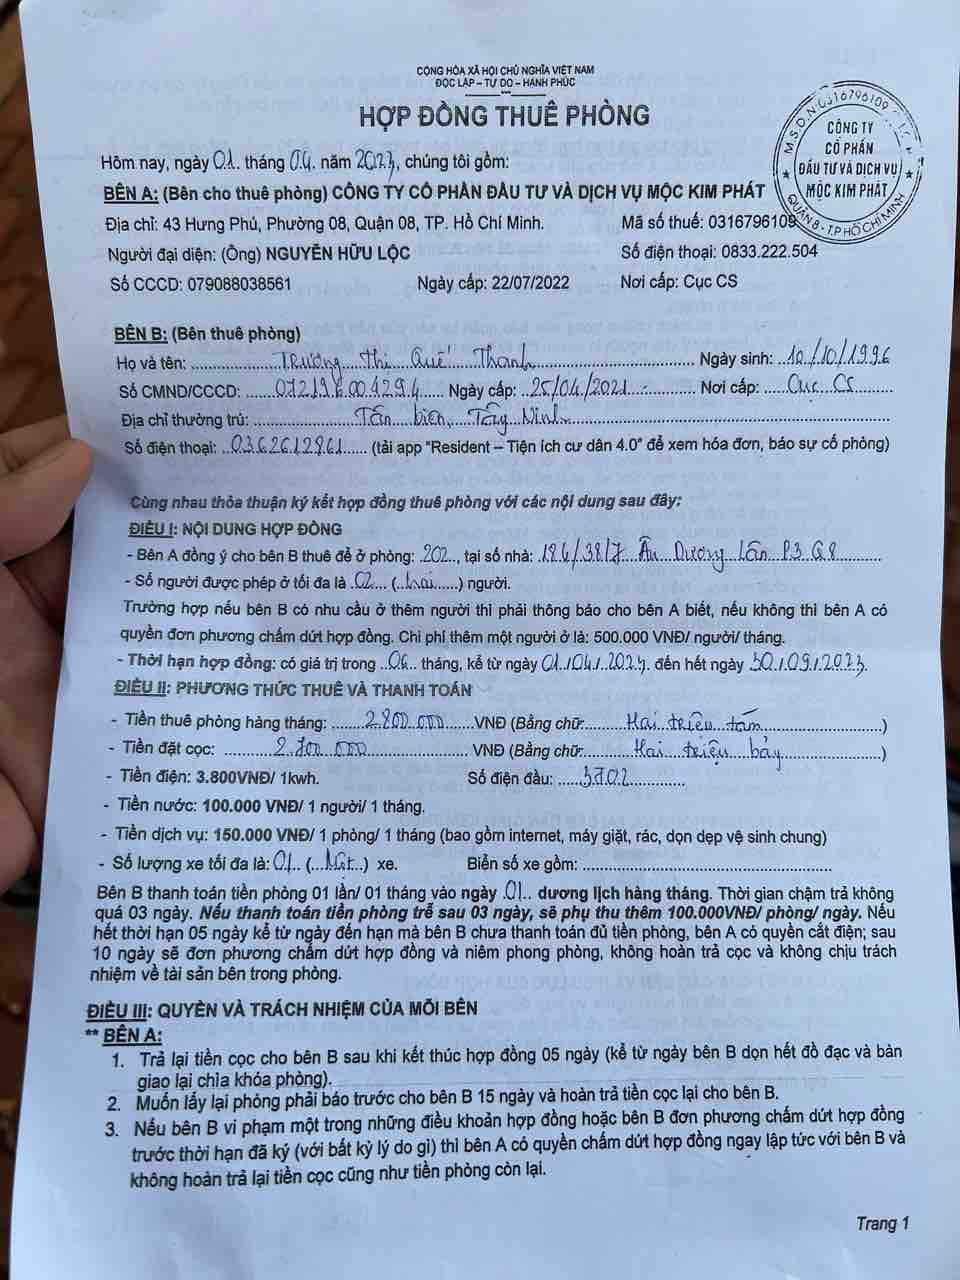 CỘNG HÒA XÃ HỘI CHỦ NGHĨA VIỆT NAM
ĐỘC LẬP – TỰ DO – HẠNH PHÚC
HỢP ĐỒNG THUÊ PHÒNG
M.S.D.N:0316796109
CÔNG TY
CỔ PHẦN
ĐẦU TƯ VÀ DỊCH VỤ
MỘC KIM PHÁT
QUẬN 8 - T.P HỒ CHÍ MINH
Hôm nay, ngày 01. tháng 04. năm 2023, chúng tôi gồm:
BÊN A: (Bên cho thuê phòng) CÔNG TY CỔ PHẦN ĐẦU TƯ VÀ DỊCH VỤ MỘC KIM PHÁT
Địa chỉ: 43 Hưng Phú, Phường 08, Quận 08, TP. Hồ Chí Minh. Mã số thuế: 0316796109
Người đại diện: (Ông) NGUYỄN HỮU LỘC Số điện thoại: 0833.222.504
Số CCCD: 079088038561 Ngày cấp: 22/07/2022 Nơi cấp: Cục CS
BÊN B: (Bên thuê phòng)
Họ và tên: Trương Thị Quế Thanh Ngày sinh: 10/10/1996
Số CMND/CCCD: 072196001294 Ngày cấp: 25/04/2021 Nơi cấp: Cục CS
Địa chỉ thường trú: Tân biên, Tây Ninh
Số điện thoại: 0362612861 (tải app "Resident – Tiện ích cư dân 4.0" để xem hóa đơn, báo sự cố phòng)
Cùng nhau thỏa thuận ký kết hợp đồng thuê phòng với các nội dung sau đây:
ĐIỀU I: NỘI DUNG HỢP ĐỒNG
- Bên A đồng ý cho bên B thuê để ở phòng: 202, tại số nhà: 126/38/7 Âu Dương Lân P3 Q8
- Số người được phép ở tối đa là 02 (hai) người.
Trường hợp nếu bên B có nhu cầu ở thêm người thì phải thông báo cho bên A biết, nếu không thì bên A có
quyền đơn phương chấm dứt hợp đồng. Chi phí thêm một người ở là: 500.000 VNĐ/ người/ tháng.
- Thời hạn hợp đồng: có giá trị trong 06 tháng, kể từ ngày 01/04/2023. đến hết ngày 30/09/2023.
ĐIỀU II: PHƯƠNG THỨC THUÊ VÀ THANH TOÁN
- Tiền thuê phòng hàng tháng: 2.800.000 VNĐ (Bằng chữ Hai triệu tám)
- Tiền đặt cọc: 2.700.000 VNĐ (Bằng chữ Hai triệu bảy)
- Tiền điện: 3.800VNĐ/ 1kwh. Số điện đầu: 3702
- Tiền nước: 100.000 VNĐ/ 1 người/ 1 tháng.
- Tiền dịch vụ: 150.000 VNĐ/ 1 phòng/ 1 tháng (bao gồm internet, máy giặt, rác, dọn dẹp vệ sinh chung)
- Số lượng xe tối đa là: 01 (Một) xe. Biển số xe gồm:
Bên B thanh toán tiền phòng 01 lần/ 01 tháng vào ngày 01. dương lịch hàng tháng. Thời gian chậm trả không
quá 03 ngày. Nếu thanh toán tiền phòng trễ sau 03 ngày, sẽ phụ thu thêm 100.000VNĐ/ phòng/ ngày. Nếu
hết thời hạn 05 ngày kể từ ngày đến hạn mà bên B chưa thanh toán đủ tiền phòng, bên A có quyền cắt điện; sau
10 ngày sẽ đơn phương chấm dứt hợp đồng và niêm phong phòng, không hoàn trả cọc và không chịu trách
nhiệm về tài sản bên trong phòng.
ĐIỀU III: QUYỀN VÀ TRÁCH NHIỆM CỦA MỖI BÊN
** BÊN A:
1. Trả lại tiền cọc cho bên B sau khi kết thúc hợp đồng 05 ngày (kể từ ngày bên B dọn hết đồ đạc và bàn
giao lại chìa khóa phòng).
2. Muốn lấy lại phòng phải báo trước cho bên B 15 ngày và hoàn trả tiền cọc lại cho bên B.
3. Nếu bên B vi phạm một trong những điều khoản hợp đồng hoặc bên B đơn phương chấm dứt hợp đồng
trước thời hạn đã ký (với bất kỳ lý do gì) thì bên A có quyền chấm dứt hợp đồng ngay lập tức với bên B và
không hoàn trả lại tiền cọc cũng như tiền phòng còn lại.
Trang 1